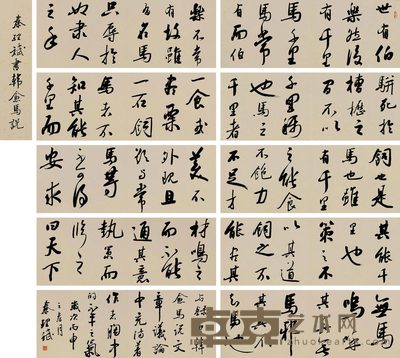 秦理斌書韓愈馬說
世有伯
樂然後
有千里
馬千里
馬常
有而伯
樂不常
有故雖
有名馬
只辱於
奴隸人
之手
駢死於
槽櫪之
間不以
千里稱
也馬之
千里者
一食或
盡粟
一石飼
馬者不
知其能
千里而
飼也是
馬也雖
有千里
之能食
不飽力
不足才
美不
外現且
欲與常
馬等
不可得
安求
其能千
里也
策之不
以其道
飼之不
能盡其
材鳴之
而不能
通其意
執策而
臨之
曰天下
無馬
嗚呼
其真
無馬邪
其真不
知馬也
愈馬說文
章議論
中充滿着
作者胸中
的不平之氣
歲次丙申
秦理斌